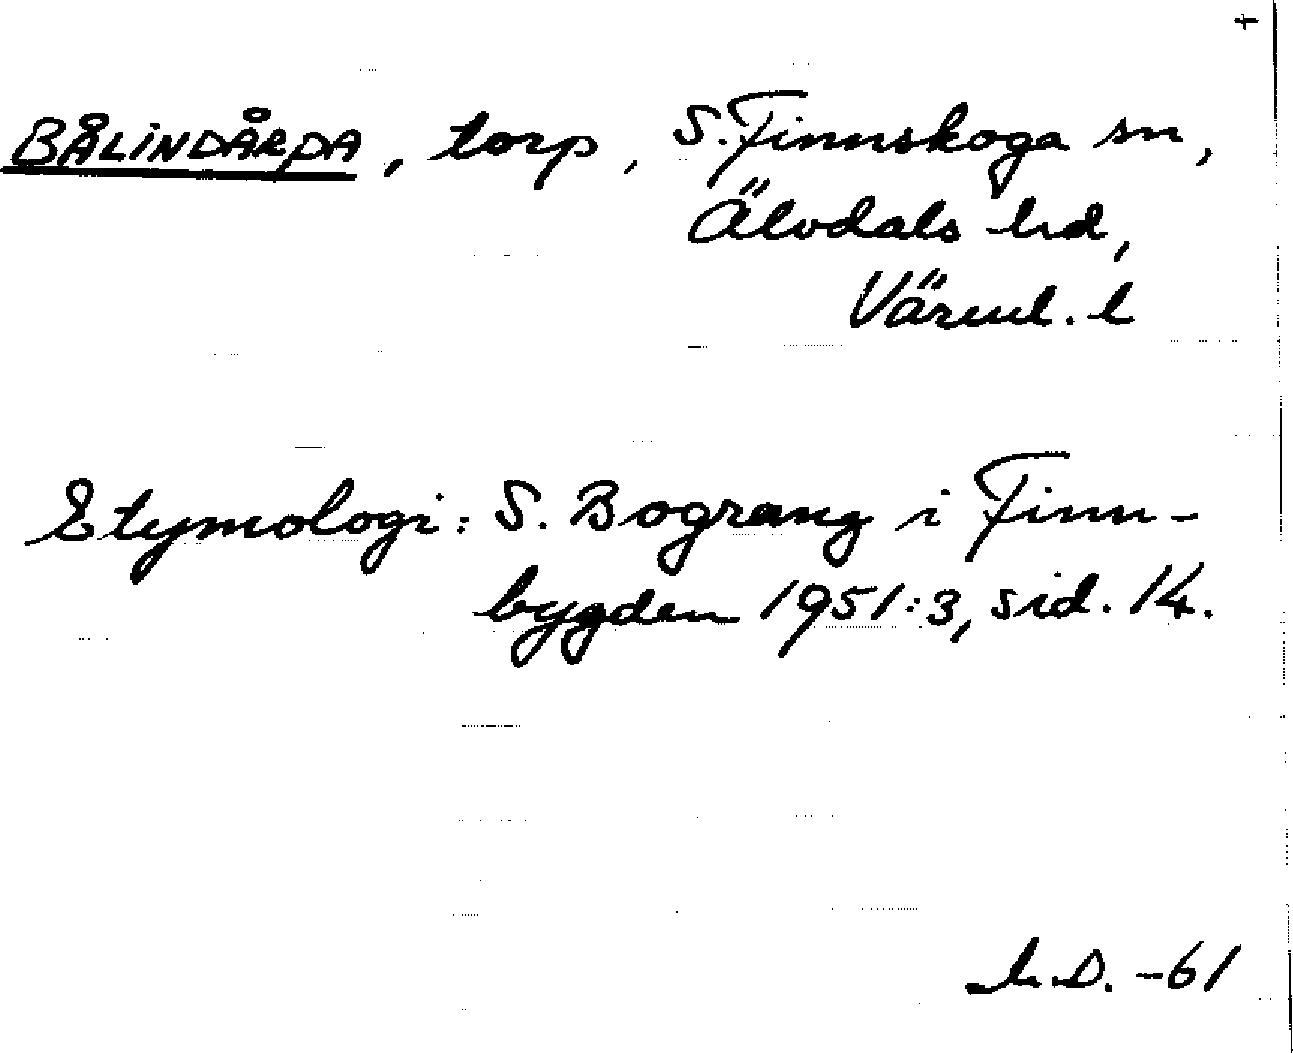 BÅLINDÅRDA, torp, S. Finnskoga sn,
Älvdals hd,
Värml. l
Etymologi: S. Bograng i Finn-
bygden 1951:3, sid. 14.
D. -61